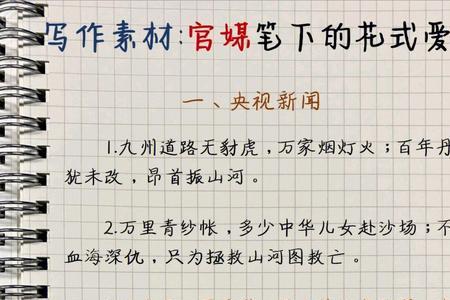 写作素材:官媒笔下的花式爱
一、央视新闻
1.九州道路无豺虎，万家烟灯火；百年丹
犹未改，昂首振山河。
2.万里青纱帐，多少中华儿女赴沙场；不
血海深仇，只为拯救山河图救亡。